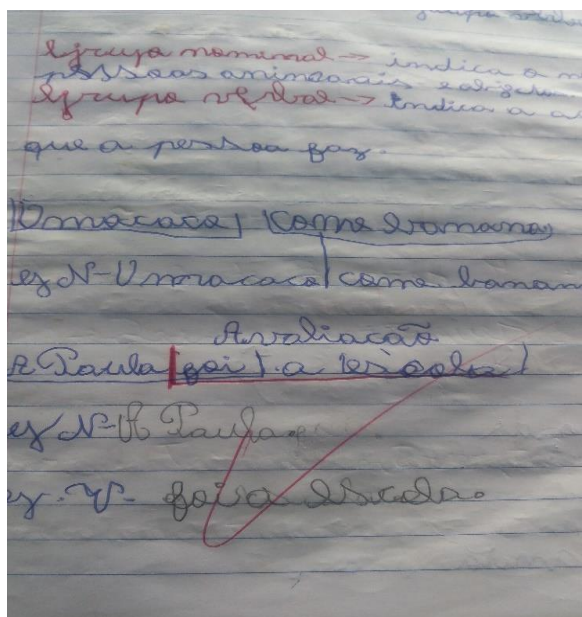 Grupo nominal → indica o n
pessoas animaais e objetos
Grupo verbal → Indica a a
que a pessoa faz.
|O macaco| |Come banana|
g N- O macaco| come banan
Avaliacão
A Paula |foi| a escola|
g N- A Paula.
g. V- foi a escola.